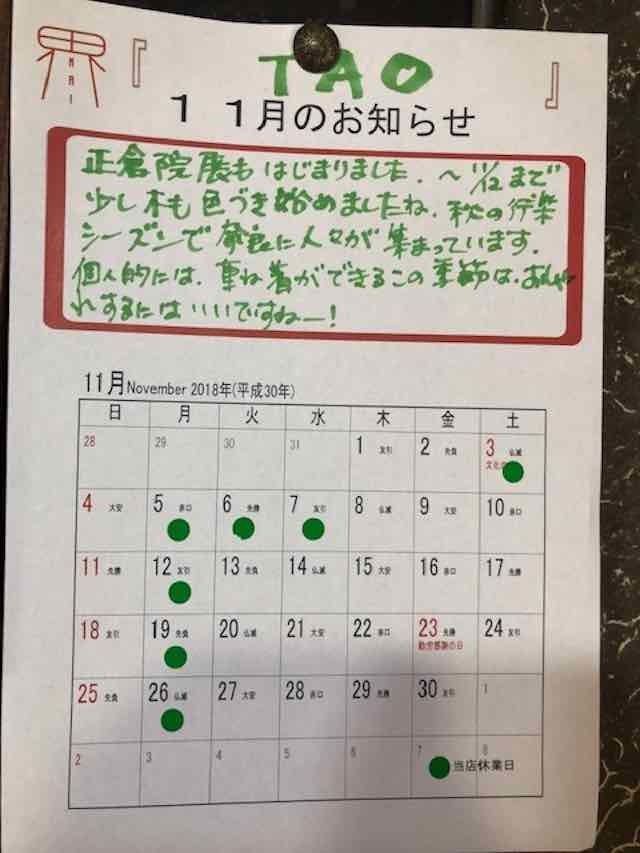 界
KAI
『 TAO 』
11月のお知らせ
正倉院展も はじまりました. 〜11/12まで
少し木も色づき始めましたね. 秋の行楽
シーズンで奈良に人々が集まっています.
個人的には、重ね着ができるこの季節は、おしゃ
れするには いいですねー!
11月 November 2018年(平成30年)
日 月 火 水 木 金 土
28 29 30 31 1 友引 2 先負 3 仏滅
文化の
4 大安 5 赤口 6 先勝 7 友引 8 仏滅 9 大安 10 赤口
11 先勝 12 友引 13 先負 14 仏滅 15 大安 16 赤口 17 先勝
18 友引 19 先負 20 仏滅 21 大安 22 赤口 23 先勝 24 友引
勤労感謝の日
25 先負 26 仏滅 27 大安 28 赤口 29 先勝 30 友引 1
2 3 4 5 6 7 8
当店休業日